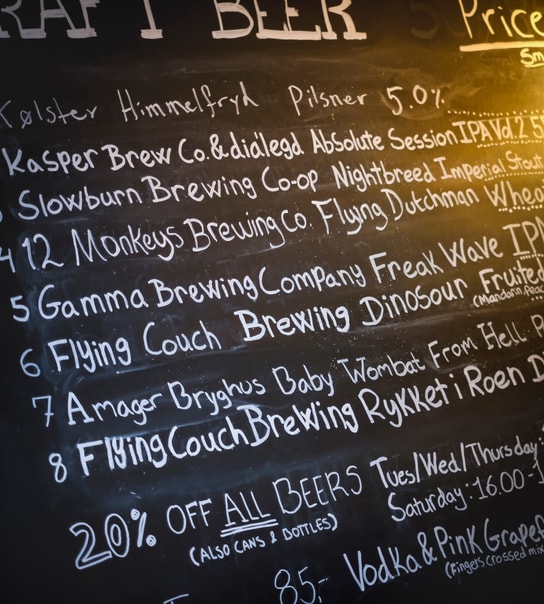 CRAFT BEER
Price
Sm
Kølster Himmelfryd Pilsner 5.0%
Kasper Brew Co. & diallegd Absolute Session IPA Vol. 2 5
Slowburn Brewing Co-op Nightbreed Imperial Stout
4 12 Monkeys Brewing Co. Flying Dutchman Whea
5 Gamma Brewing Company Freak Wave IPA
6 Flying Couch Brewing Dinosour Fruited
(Mandarin, Peac
7 Amager Bryghus Baby Wombat From Hell
8 Flying Couch Brewing Rykket i Roen D
20% OFF ALL BEERS
(ALSO CANS & BOTTLES)
Tues/Wed/Thursday:
Saturday: 16.00-1
85,- Vodka & Pink Grapef
(Fingers crossed mix